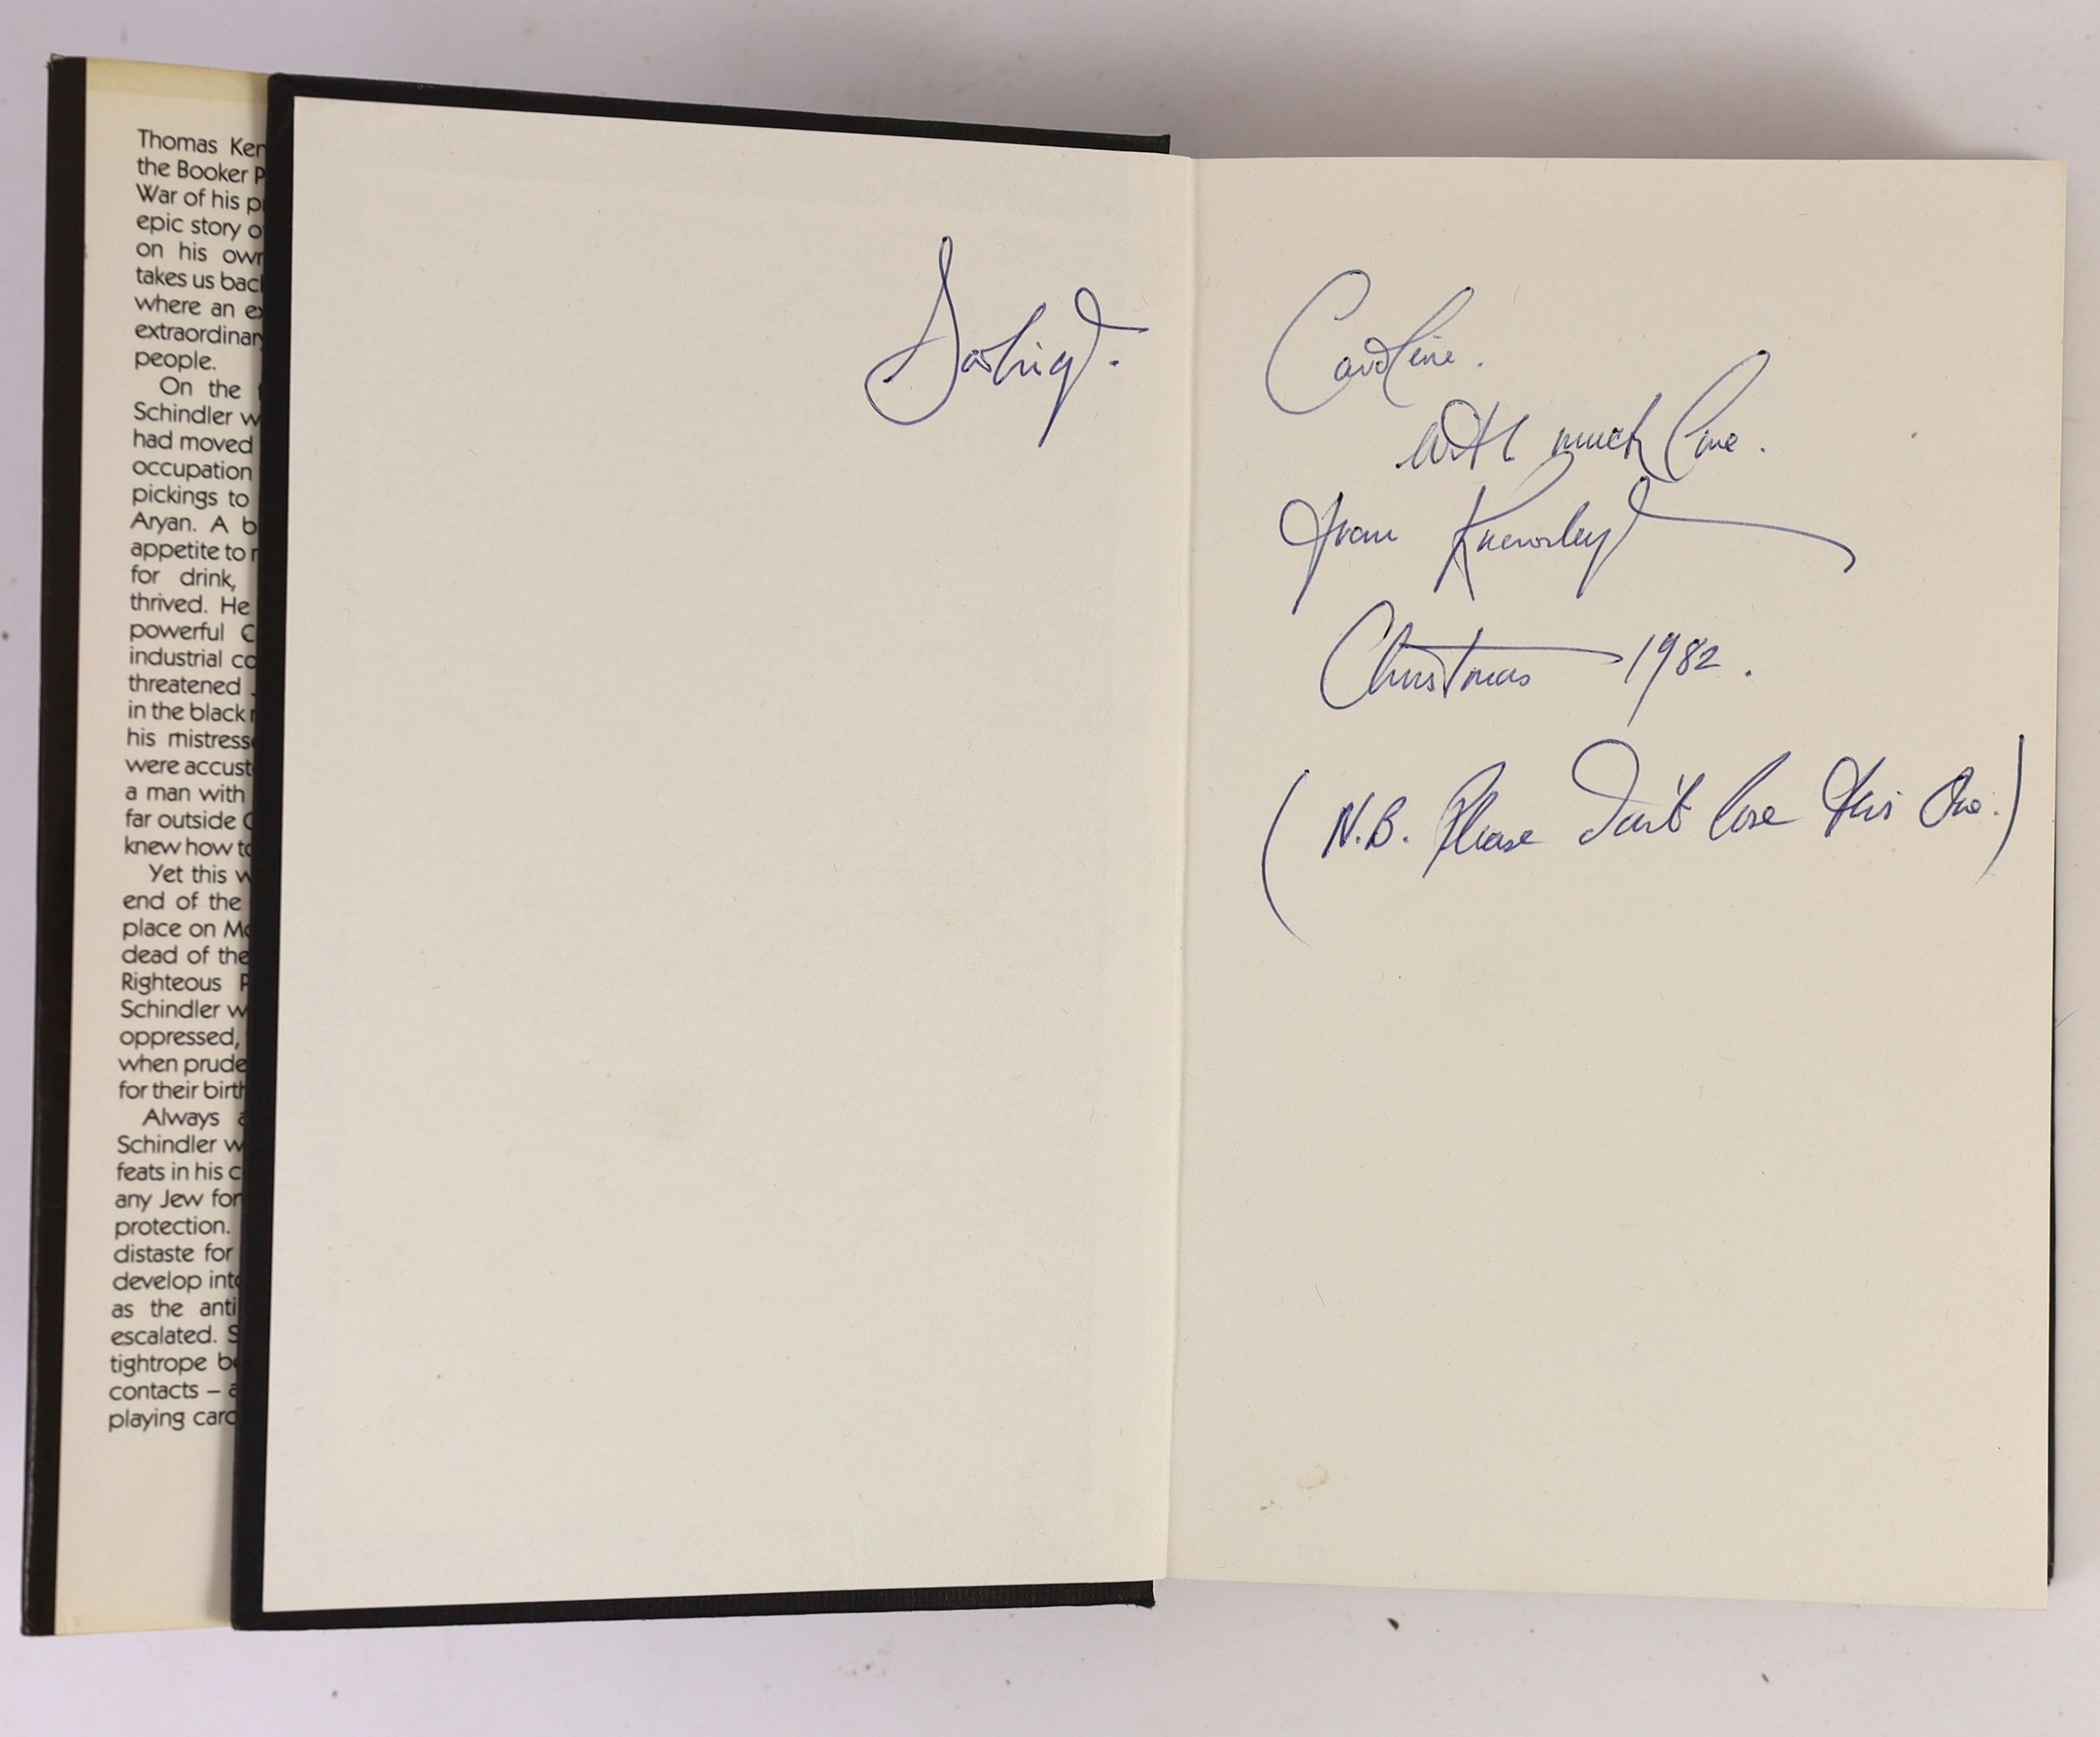 Thomas Ken
the Booker P
War of his p
epic story o
on his own
takes us bac
where an ex
extraordinary
people.
On the f
Schindler w
had moved
occupation
pickings to
Aryan. A b
appetite to r
for drink,
thrived. He
powerful C
industrial co
threatened
in the black
his mistress
were accust
a man with
far outside
knew how to
Yet this w
end of the
place on Mo
dead of the
Righteous P
Schindler w
oppressed,
when prude
for their birth
Always a
Schindler w
feats in his c
any Jew for
protection.
distaste for
develop into
as the anti
escalated. S
tightrope be
contacts – a
playing card
Caroline.
with much love.
from
Christmas 1982.
(N.B. Please Don't lose this One.)